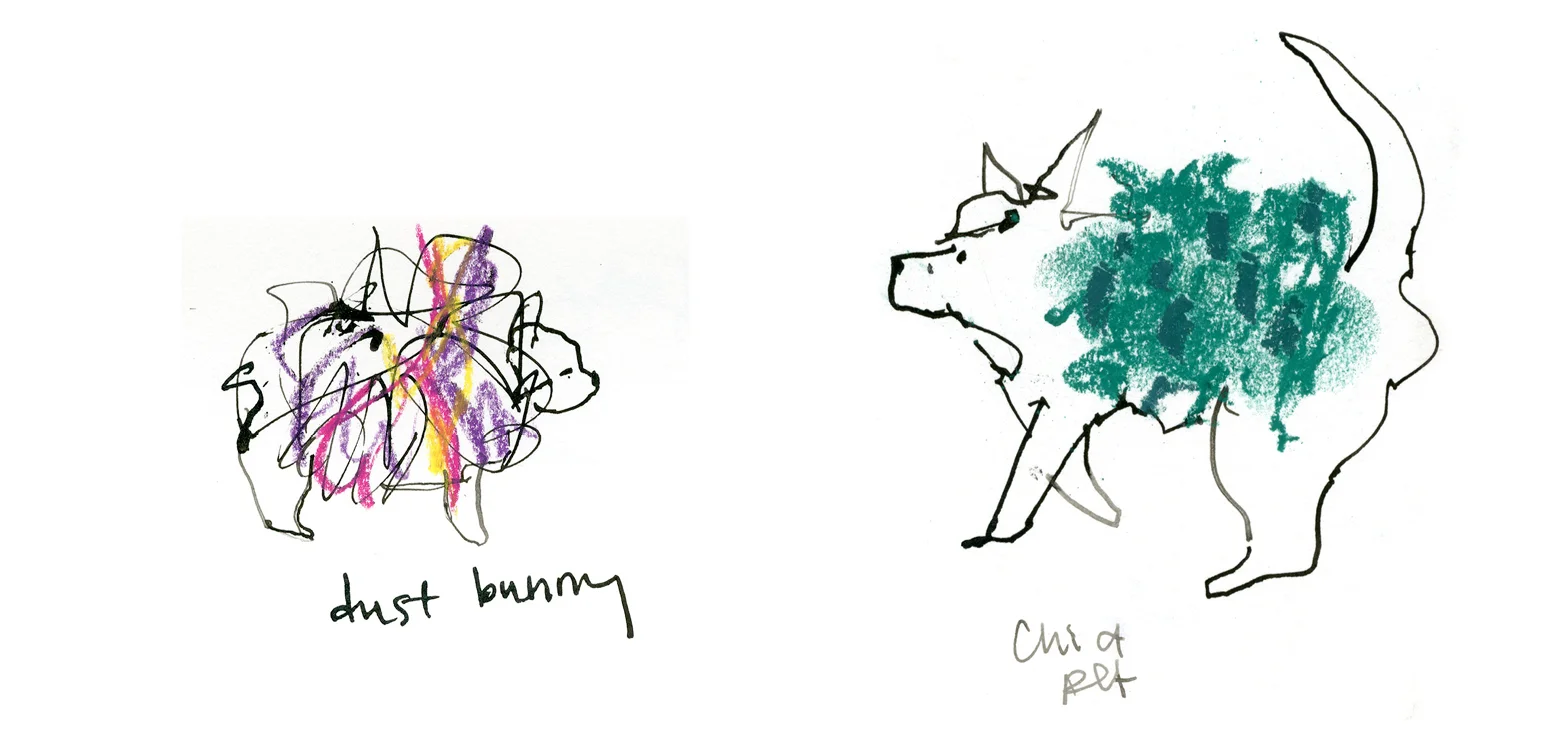 dust bunny
Chia
Pet